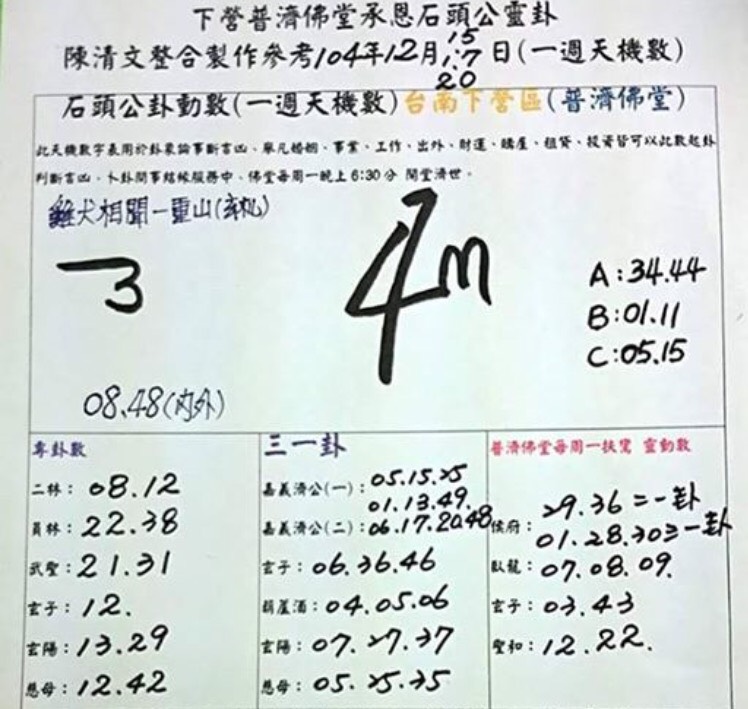 下營普濟佛堂承恩石頭公靈卦
15
陳清文整合製作參考104年12月17日(一週天機數)
20
石頭公卦動數(一週天機數)台南下營區(普濟佛堂)
此天機數字表用於卦象論事斷吉凶、舉凡婚姻、事業、工作、出外、財運、購屋、租貸、投資皆可以此數起卦
判斷吉凶、卜卦問事結緣服務中、佛堂每周一晚上6:30分 開堂濟世。
雞犬相聞一重山(玄机)
3
4
m
A:34.44
B:01.11
C:05.15
08.48(内外)
專卦數
二林:08.12
員林:22.38
武聖:21.31
玄子:12.
玄陽:13.29
慈母:12.42
三一卦
嘉義濟公(一):05.15.25
01.13.49.
嘉義濟公(二):06.17.20.48
玄子:06.36.46
葫蘆酒:04.05.06
玄陽:07.27.37
慈母:05.25.35
普濟佛堂每周一扶鸞 靈動數
29.36二一卦
侯府:
01.28.30三一卦
臥龍:07.08.09.
玄子:03.43
聖和:12.22.